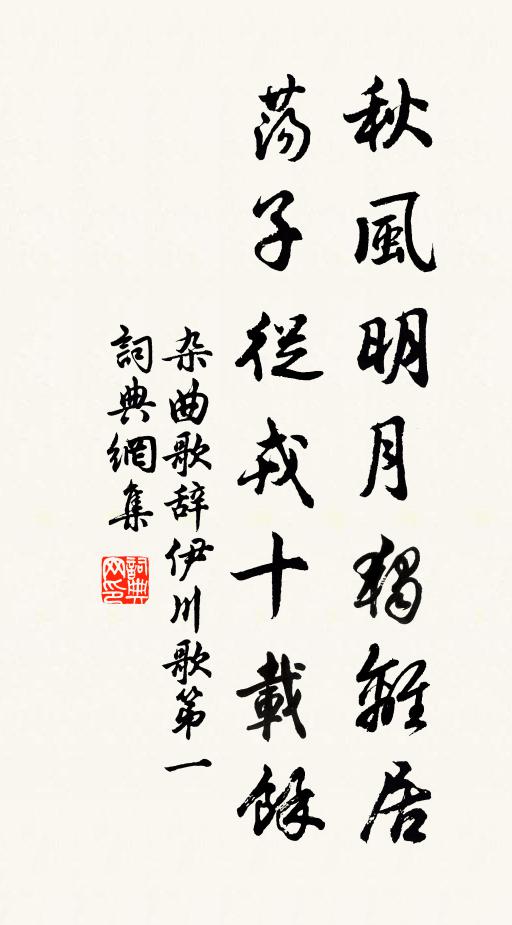 秋風明月獨離居
蕩子從戎十載餘
杂曲歌辞伊川歌第一
詞典網集
詞典
网印